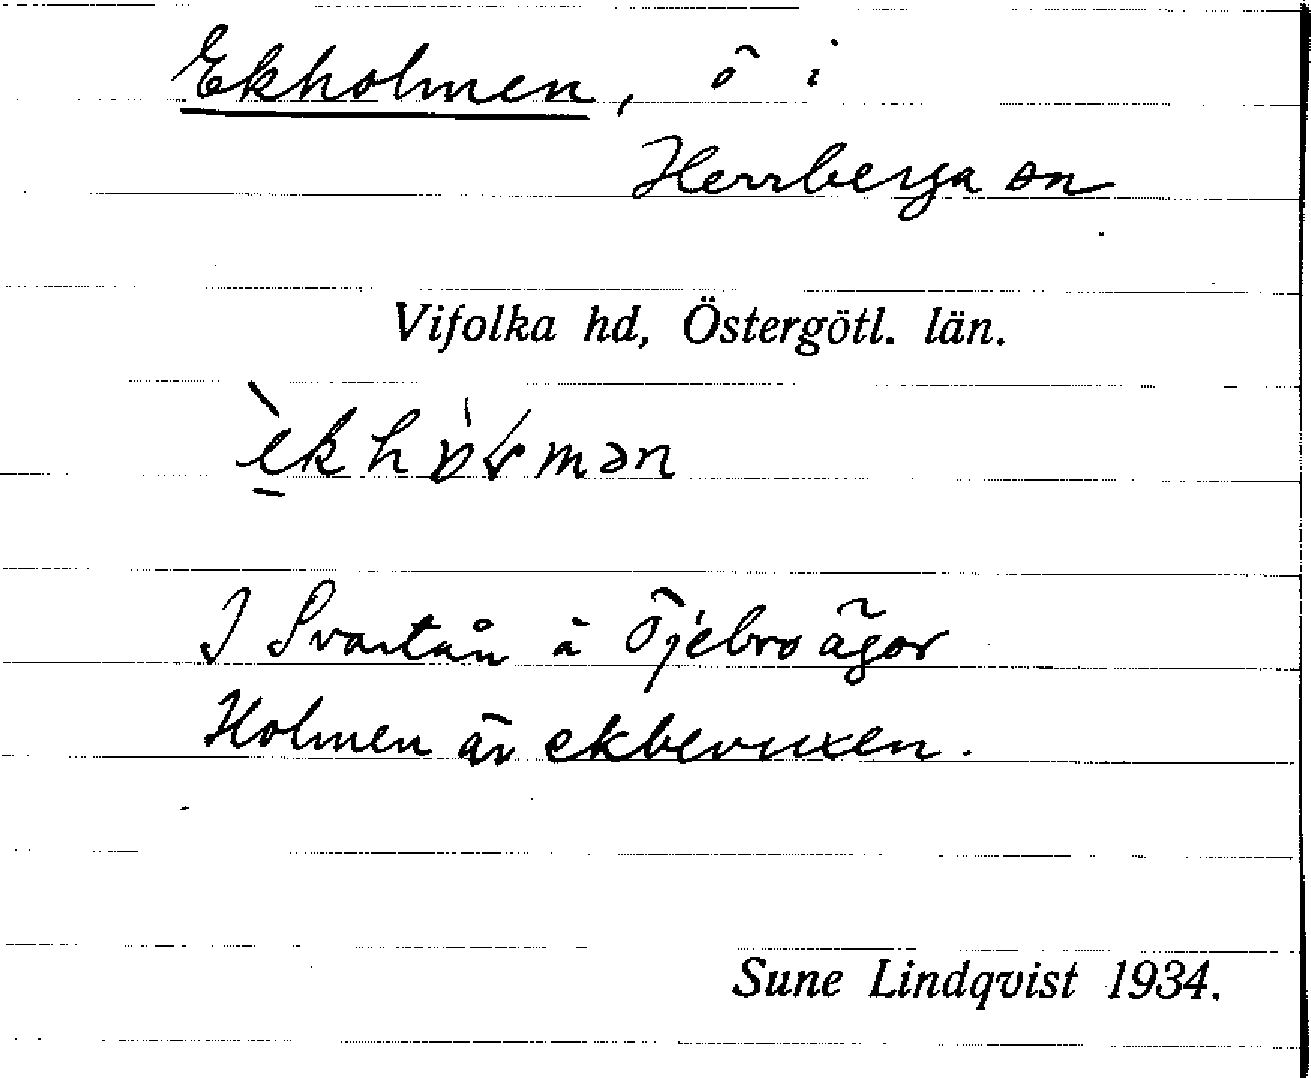 Ekholmen, ö i
Herrberga sn
Vifolka hd, Östergötl. län.
I Svartån å Öjebro ägor
Holmen är ekbevuxen.
Sune Lindqvist 1934.